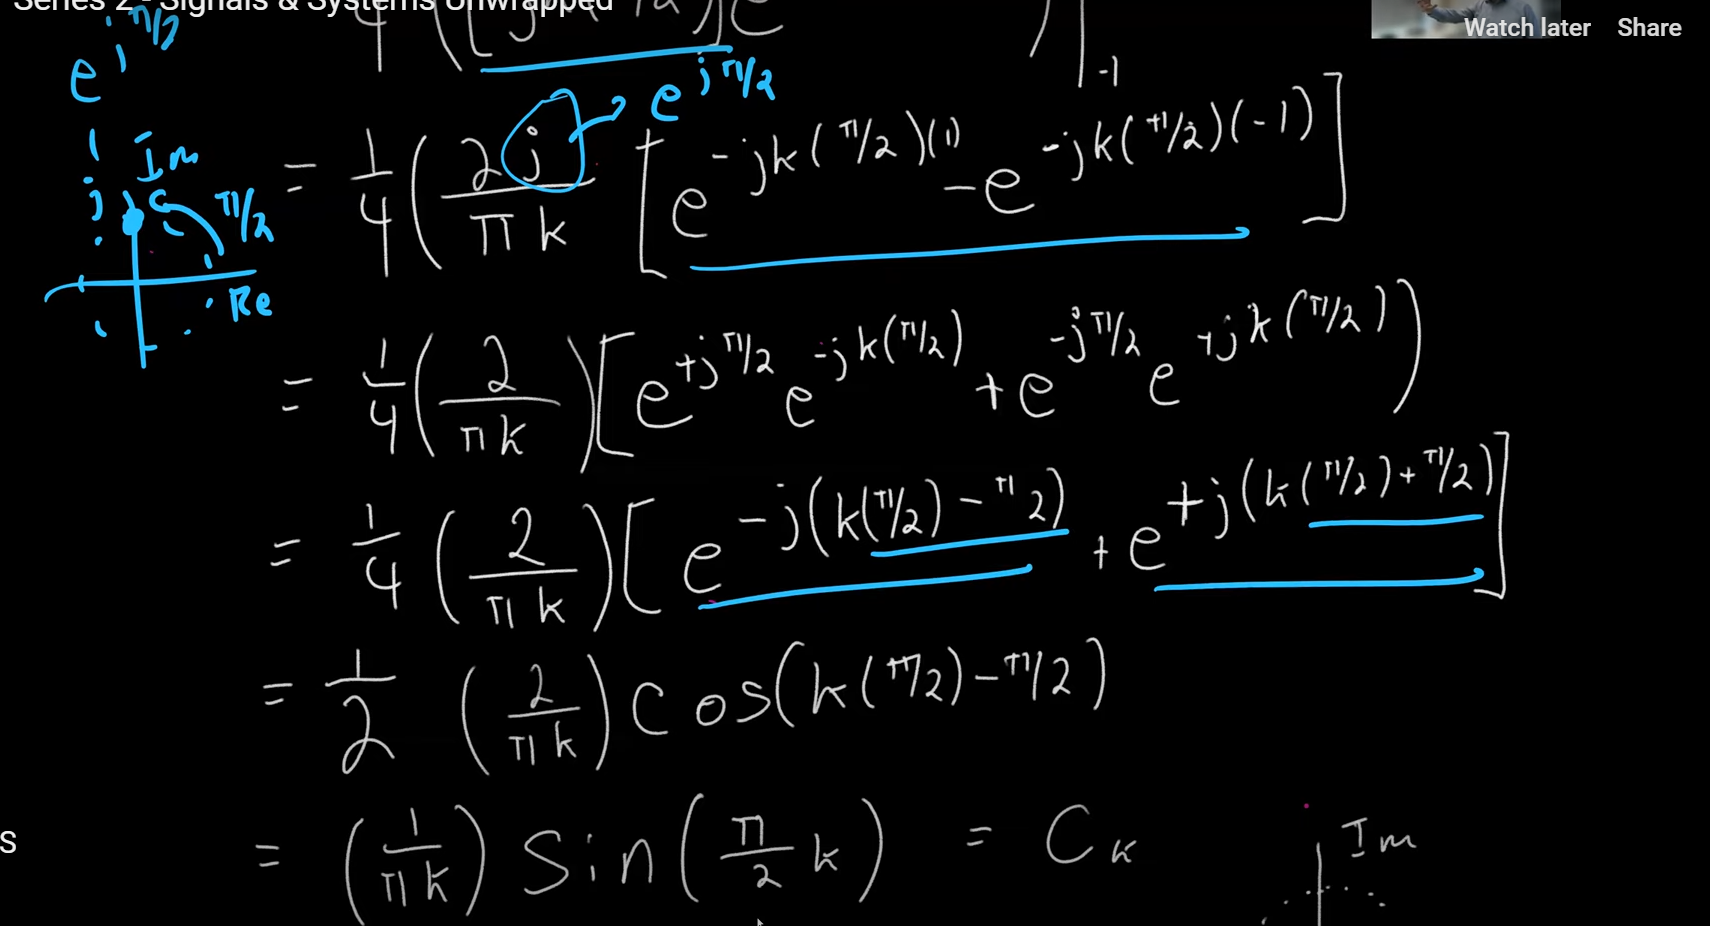 Series 2 - Signals & Systems Unwrapped
Watch later Share
e^{jπ/2}
-1
= 1/4 ( 2j/πk [ e^{-jk(π/2)(1)} - e^{-jk(π/2)(-1)} ]
→ e^{jπ/2}
Im
j
π/2
Re
= 1/4 ( 2/πk ) [ e^{+jπ/2} e^{-jk(π/2)} + e^{-jπ/2} e^{+jk(π/2)} )
= 1/4 ( 2/πk ) [ e^{-j(k(π/2) - π/2)} + e^{+j(k(π/2) + π/2)} ]
= 1/2 ( 2/πk ) cos( k(π/2) - π/2 )
s
= ( 1/πk ) Sin( π/2 k ) = C_k
Im